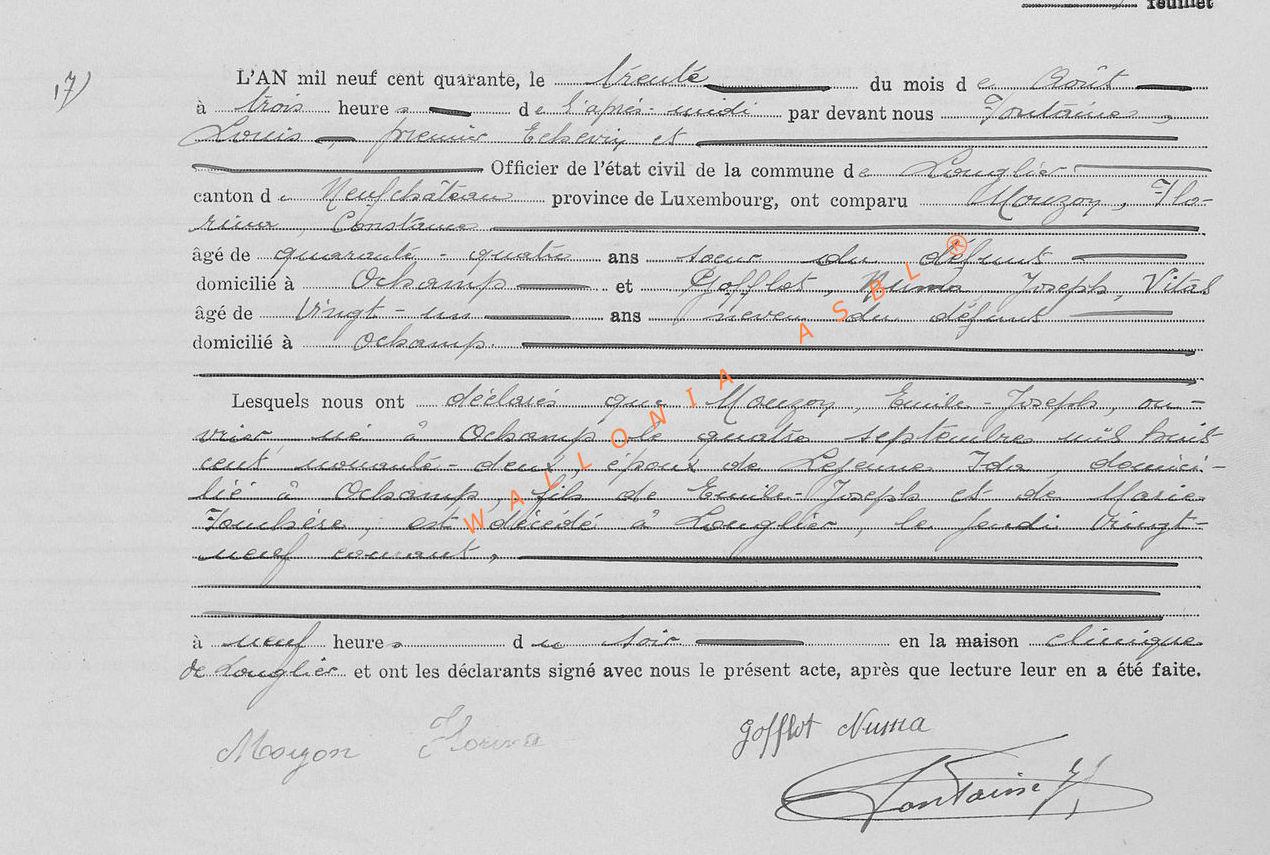 feuillet
17)
L'AN mil neuf cent quarante, le trente du mois de Août
à trois heures de l'après-midi par devant nous Fontaine,
Louis, premier Echevin et
Officier de l'état civil de la commune de Longlier
canton de Neufchâteau province de Luxembourg, ont comparu Mouzon, Flo-
rina, Constance
âgé de quarante-quatre ans soeur du défunt
domicilié à Ochamp et Gofflot, Numa Joseph, Vital
âgé de vingt-un ans neveu du défunt
domicilié à Ochamp.
Lesquels nous ont déclaré que Mouzon, Emile-Joseph, ou-
vrier, né à Ochamp le quatre septembre mil huit
cent nonante-deux, époux de Lejeune Ida, domici-
lié à Ochamp, fils de Emile-Joseph et de Marie
est décédé à Longlier, le jeudi vingt-
neuf courant,
à neuf heures du soir en la maison clinique
de Longlier et ont les déclarants signé avec nous le présent acte, après que lecture leur en a été faite.
Mouzon Florina
Gofflot Numa
Fontaine
WALLONIA ASBL ®